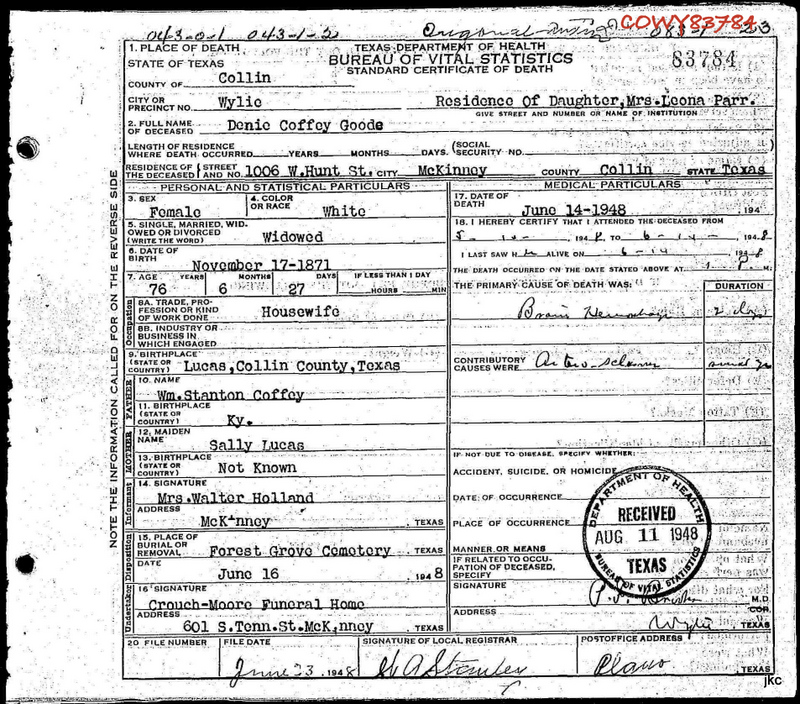 043-0-1 043-1-2 COWY83784
1. PLACE OF DEATH TEXAS DEPARTMENT OF HEALTH
STATE OF TEXAS BUREAU OF VITAL STATISTICS 83784
COUNTY OF Collin STANDARD CERTIFICATE OF DEATH
CITY OR PRECINCT NO. Wylie Residence Of Daughter,Mrs.Leona Parr.
GIVE STREET AND NUMBER OR NAME OF INSTITUTION
2. FULL NAME OF DECEASED Denie Coffey Goode
LENGTH OF RESIDENCE WHERE DEATH OCCURRED YEARS MONTHS DAYS. (SOCIAL SECURITY NO. )
RESIDENCE OF THE DECEASED (STREET AND NO. 1006 W.Hunt St. CITY McKinney COUNTY Collin STATE Texas
PERSONAL AND STATISTICAL PARTICULARS
3. SEX Female 4. COLOR OR RACE White
5. SINGLE, MARRIED, WIDOWED OR DIVORCED (WRITE THE WORD) Widowed
6. DATE OF BIRTH November 17-1871
7. AGE YEARS MONTHS DAYS IF LESS THAN 1 DAY
76 6 27 HOURS MIN
Occupation
8A. TRADE, PROFESSION OR KIND OF WORK DONE Housewife
8B. INDUSTRY OR BUSINESS IN WHICH ENGAGED
9. BIRTHPLACE (STATE OR COUNTRY) Lucas,Collin County,Texas
FATHER
10. NAME Wm.Stanton Coffey
11. BIRTHPLACE (STATE OR COUNTRY) Ky.
MOTHER
12. MAIDEN NAME Sally Lucas
13. BIRTHPLACE (STATE OR COUNTRY) Not Known
Informant
14. SIGNATURE Mrs.Walter Holland
ADDRESS McKinney , TEXAS
Disposition
15. PLACE OF BURIAL OR REMOVAL Forest Grove Cemetery , TEXAS
DATE June 16 1948
Undertaker
16 SIGNATURE Crouch-Moore Funeral Home
ADDRESS 601 S.Tenn.St.McK,nney , TEXAS
MEDICAL PARTICULARS
17. DATE OF DEATH June 14-1948 , 194
18. I HEREBY CERTIFY THAT I ATTENDED THE DECEASED FROM
5-10- 1948 TO 6-14- , 1948
I LAST SAW H ALIVE ON 6-14 1948
THE DEATH OCCURRED ON THE DATE STATED ABOVE AT M.
THE PRIMARY CAUSE OF DEATH WAS: DURATION
Brain Hemorrhage 2 days
CONTRIBUTORY CAUSES WERE
IF NOT DUE TO DISEASE, SPECIFY WHETHER:
ACCIDENT, SUICIDE, OR HOMICIDE
DATE OF OCCURRENCE
PLACE OF OCCURRENCE
MANNER OR MEANS
IF RELATED TO OCCUPATION OF DECEASED, SPECIFY
SIGNATURE M.D.
COR.
ADDRESS Wylie , TEXAS
DEPARTMENT OF HEALTH
RECEIVED
AUG. 11 1948
TEXAS
BUREAU OF VITAL STATISTICS
20 FILE NUMBER FILE DATE SIGNATURE OF LOCAL REGISTRAR POSTOFFICE ADDRESS
June 23 1948 Stanley Plano , TEXAS
jkc
NOTE THE INFORMATION CALLED FOR ON THE REVERSE SIDE